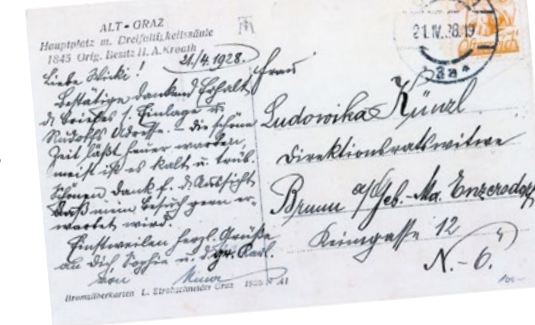 ALT-GRAZ
Hauptplatz m. Dreifaltigkeitssäule
1845 Orig. Besitz H. A. Kroath
21/4.1928.
Liebe Wicki!
Bestätige dankend Erhalt
d. Briefes s. Einlage u.
Rudolfs Adresse. – Die schöne
Zeit läßt heuer warten,
meist ist es kalt u. trüb.
Schönen Dank f. d. Aussicht
daß mein Besuch gern er-
wartet wird.
Einstweilen herzl. Grüße
an Dich, Sophie u. Karl.
von
Bromsilberkarten L. Strohschneider Graz
21.IV.28.19
3a
Frau
Ludowika Künzl
Direktionsratswitwe
Brunn a/Geb.-Ma. Enzersdorf
Keimgasse 12
N.-Ö.